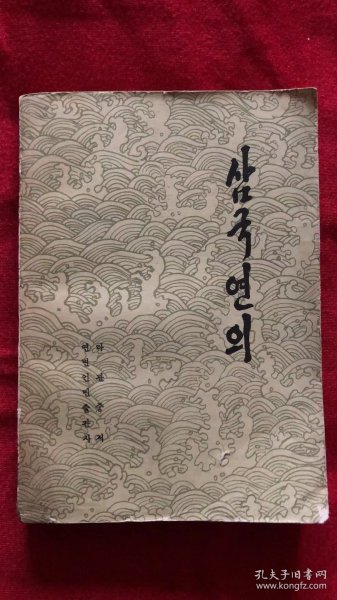 삼국연의
라관중 저
연변인민출판사
孔夫子旧书网
www.kongfz.com